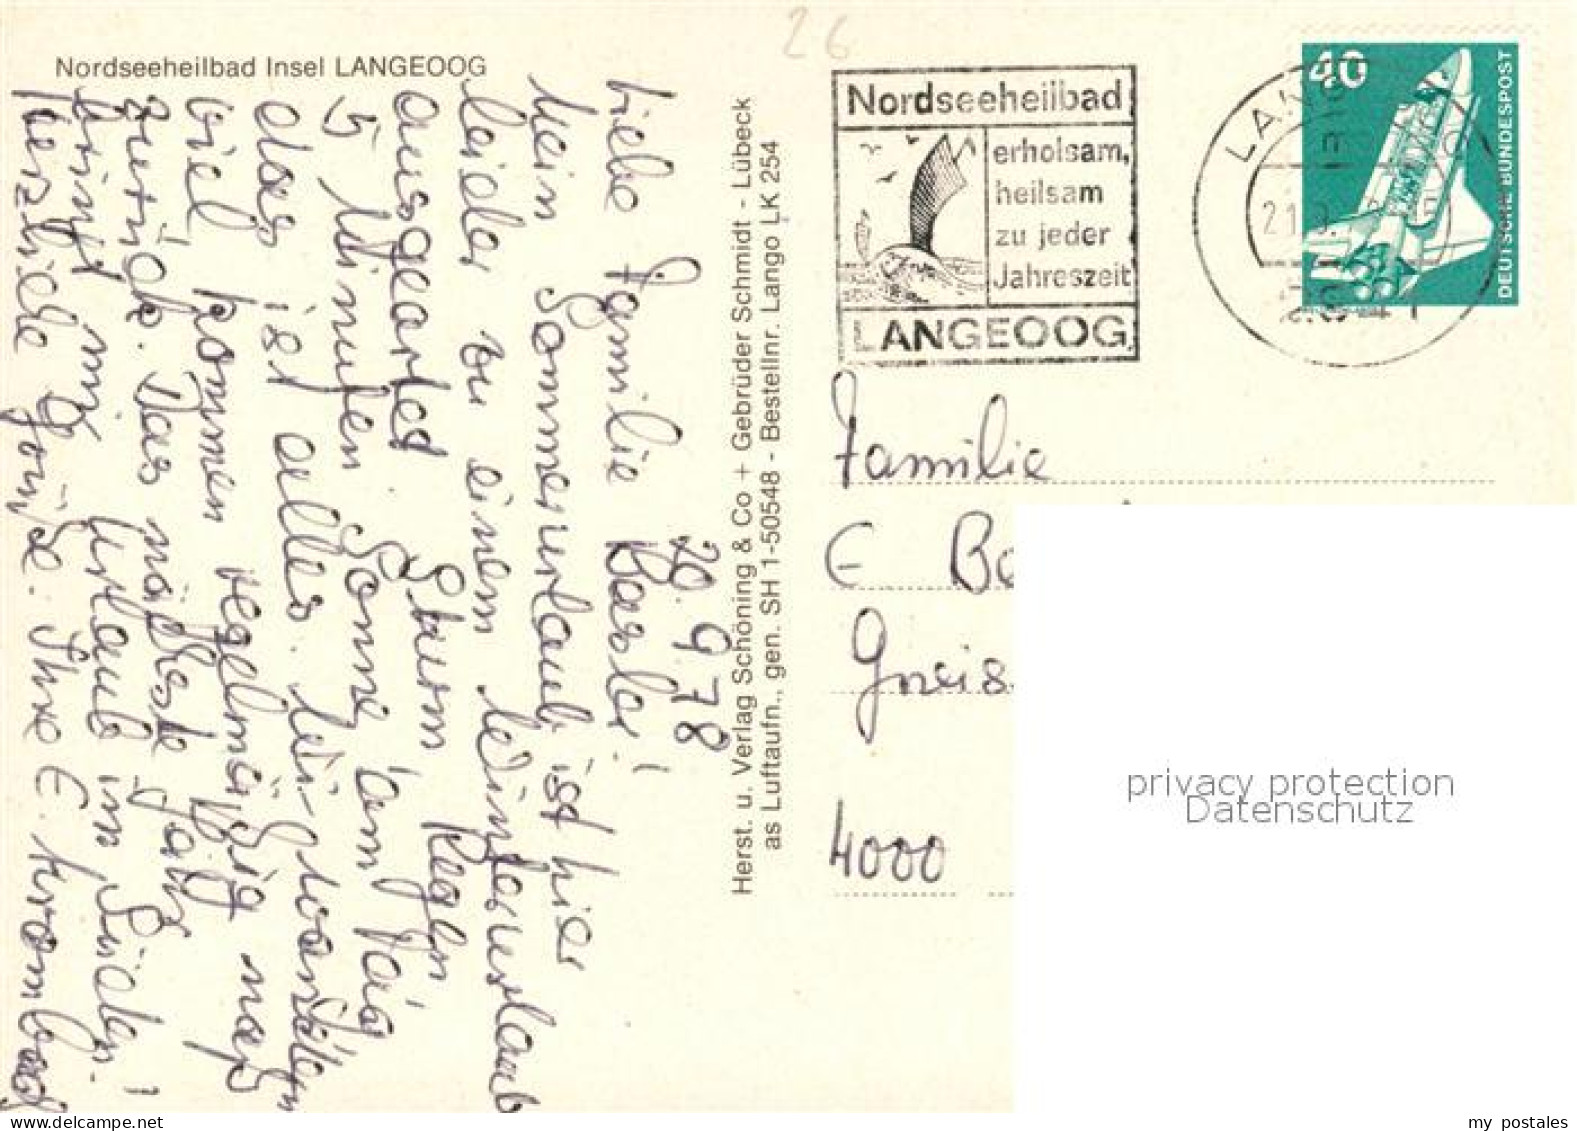 Nordseeheilbad Insel LANGEOOG
26
20. 9. 78
Liebe Familie Bassler!
Mein Sommerurlaub ist hier
leider zu einem Winterurlaub
ausgeartet. Sturm, Regen,
5 Minuten Sonne am Tag
das ist alles. Wir wandern
viel, kommen regelmäßig naß
zurück. Das nächste Jahr
bringt mir Urlaub im Süden!
Herzliche Grüße. Ihre E. Krombach
Herst. u. Verlag Schöning & Co + Gebrüder Schmidt - Lübeck
as Luftaufn., gen. SH 1-50548 - Bestellnr. Lango LK 254
Nordseeheilbad
erholsam,
heilsam
zu jeder
Jahreszeit
LANGEOOG
40
DEUTSCHE BUNDESPOST
Familie
E Ba
Gneis
4000
privacy protection
Datenschutz
www.delcampe.net
my postales